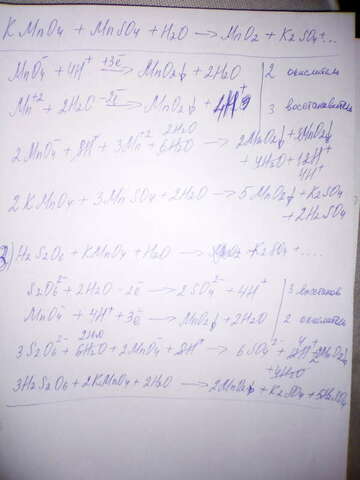 KMnO4 + MnSO4 + H2O → MnO2 + K2SO4 + ...
MnO4⁻ + 4H⁺ +3e→ MnO2↓ + 2H2O | 2 окислитель
Mn⁺² + 2H2O -2e→ MnO2↓ + 4H⁺ | 3 восстановитель
2H2O
2MnO4⁻ + 8H⁺ + 3Mn⁺² + 6H2O → 2MnO2↓ + 3MnO2↓
+ 4H2O + 12H⁺
4H⁺
2KMnO4 + 3MnSO4 + 2H2O → 5MnO2↓ + K2SO4
+ 2H2SO4
2) H2S2O6 + KMnO4 + H2O → K2SO4 + ....
S2O6²⁻ + 2H2O - 2e → 2SO4²⁻ + 4H⁺ | 3 восстанов
MnO4⁻ + 4H⁺ + 3e → MnO2↓ + 2H2O | 2 окислител
2H2O
3S2O6²⁻ + 6H2O + 2MnO4⁻ + 8H⁺ → 6SO4²⁻ + 12H⁺ + 2MnO2↓
+ 4H2O
3H2S2O6 + 2KMnO4 + 2H2O → 2MnO2↓ + K2SO4 + 5H2SO4